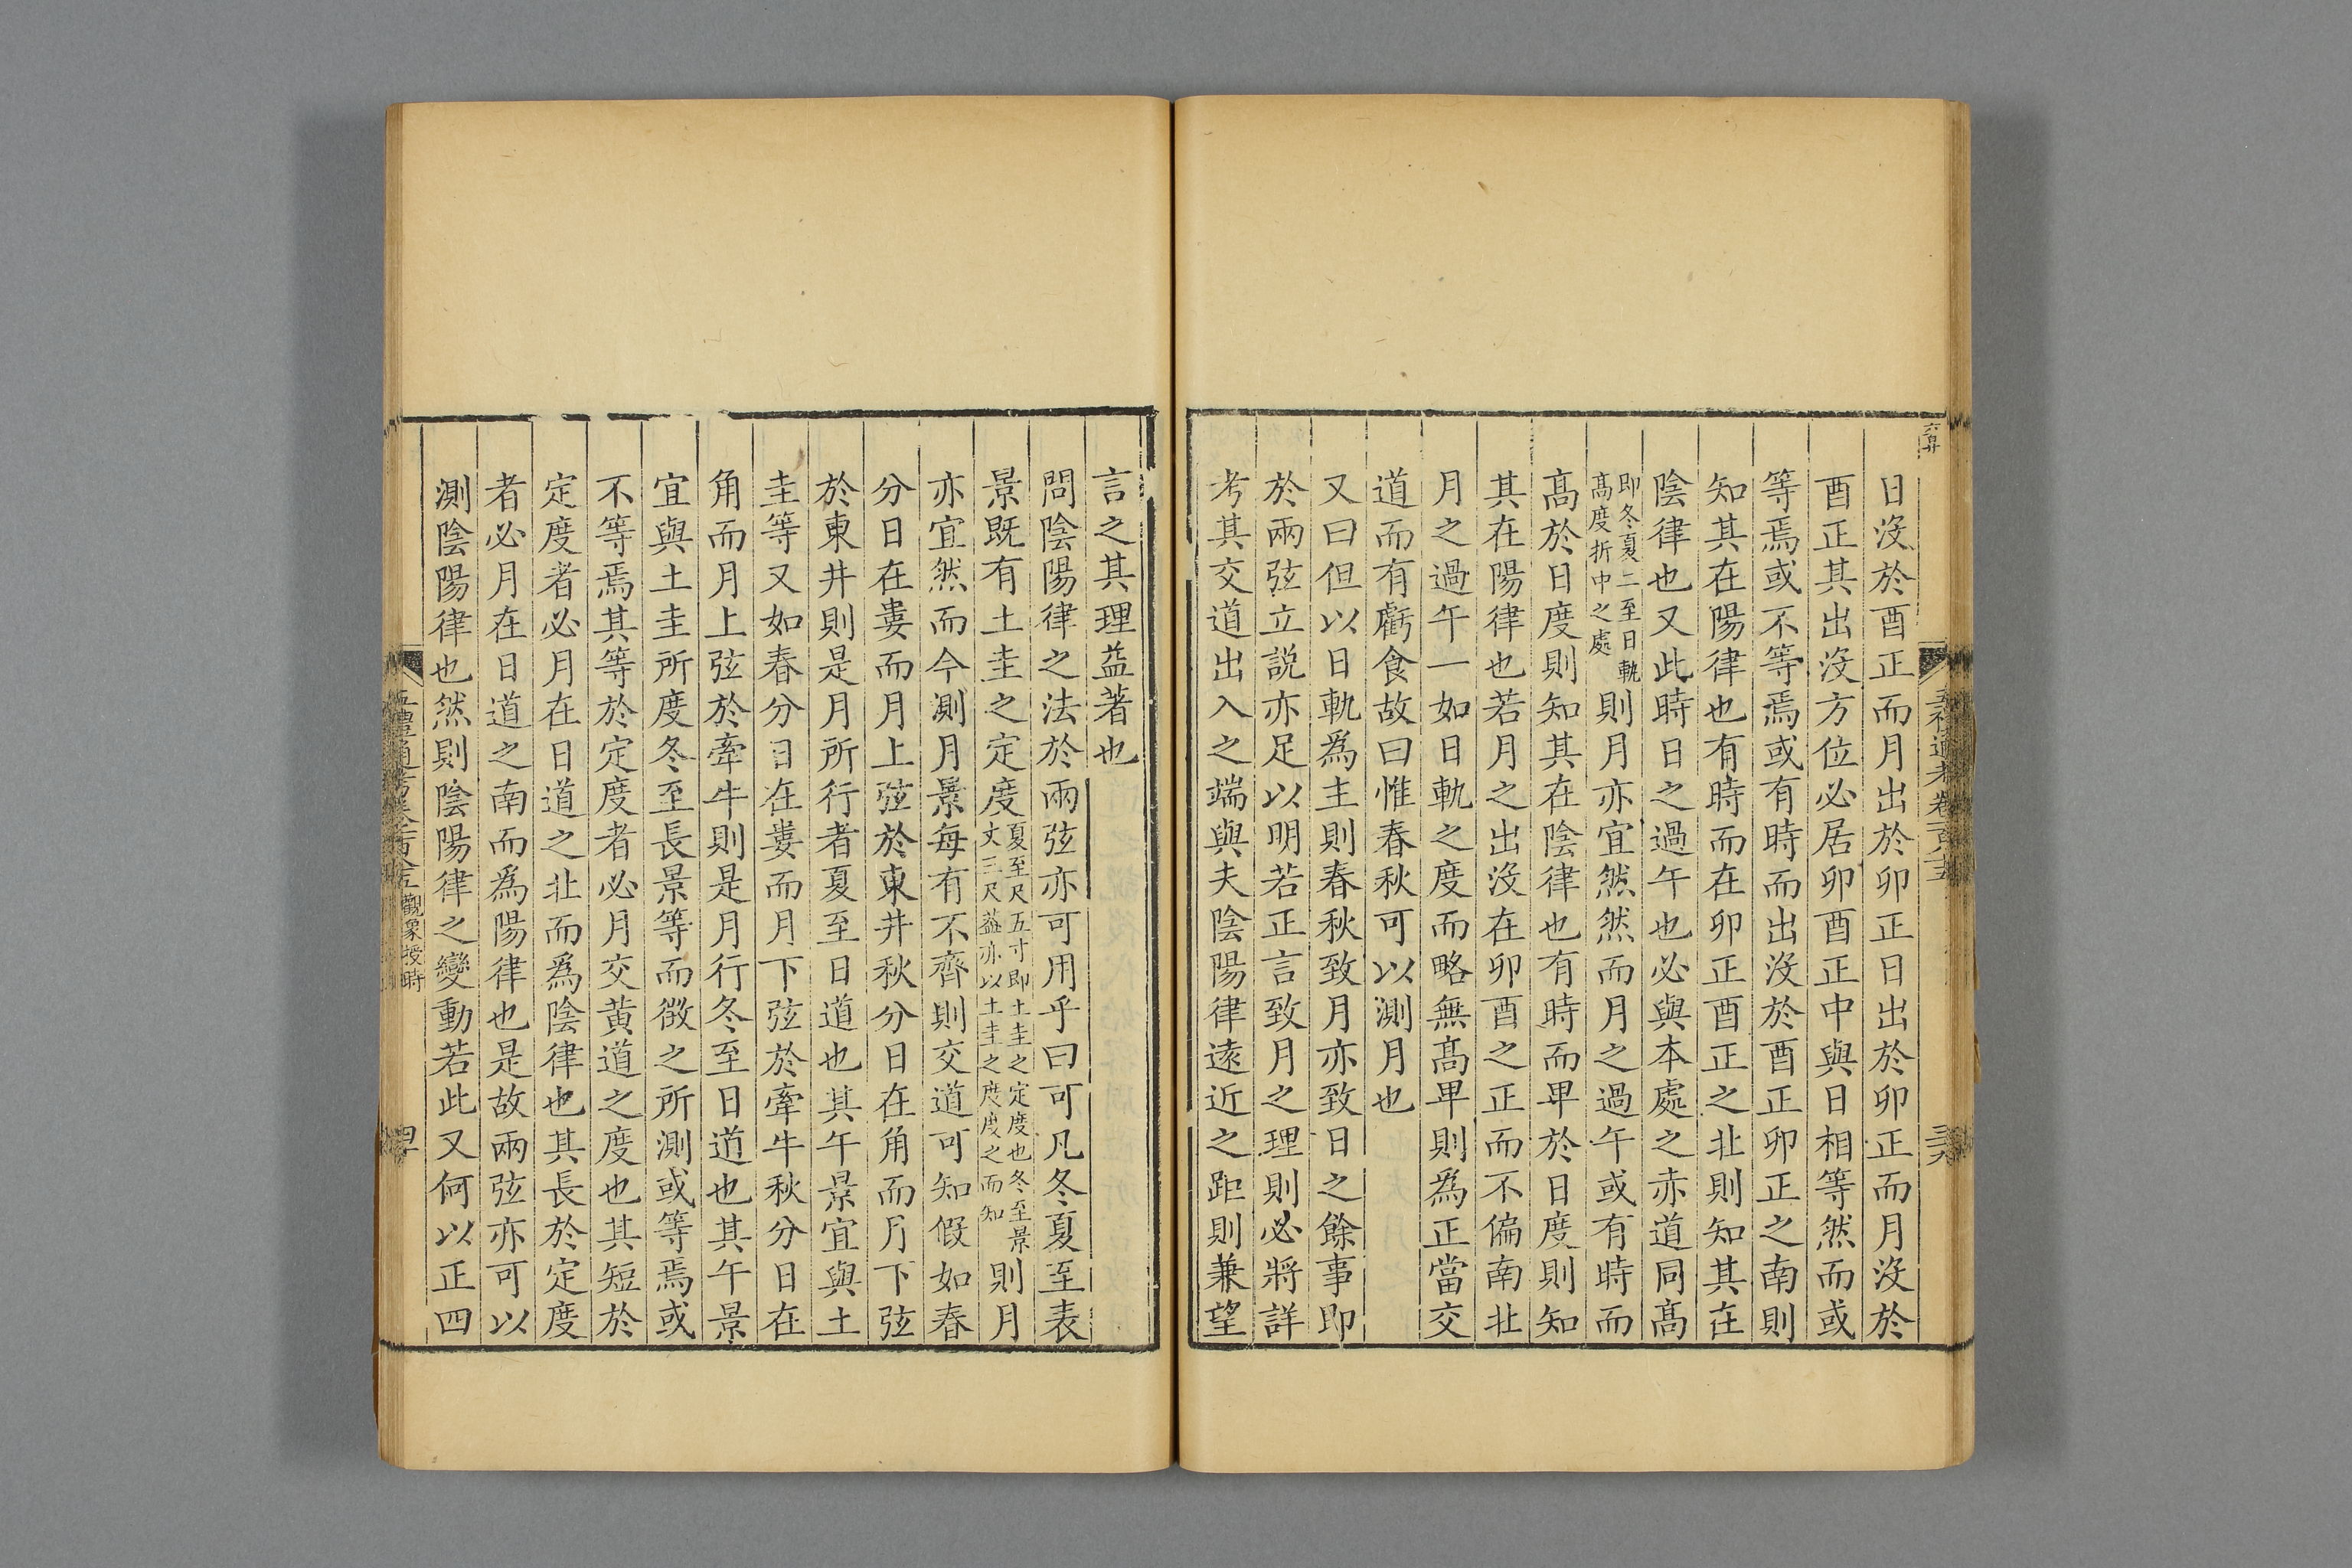 日沒於酉正而月出於卯正日出於卯正而月沒於
酉正其出沒方位必居卯酉正中與日相等然而或
等焉或不等焉或有時而出沒於酉正卯正之南則
知其在陽律也有時而在卯正酉正之北則知其在
陰律也又此時日之過午也必與本處之赤道同髙
即冬夏二至日軌
髙度折中之處
則月亦宜然然而月之過午或有時而
髙於日度則知其在陰律也有時而卑於日度則知
其在陽律也若月之出沒在卯酉之正而不偏南北
月之過午一如日軌之度而略無髙卑則為正當交
道而有虧食故曰惟春秋可以測月也
又曰但以日軌為主則春秋致月亦致日之餘事即
於兩弦立説亦足以明若正言致月之理則必將詳
考其交道出入之端與夫陰陽律遠近之距則兼望
言之其理益著也
問陰陽律之法於兩弦亦可用乎曰可凡冬夏至表
景既有土圭之定度
夏至尺五寸即土圭之定度也冬至景
丈三尺葢亦以土圭之度度之而知
則月
亦宜然而今測月景每有不齊則交道可知假如春
分日在婁而月上弦於東井秋分日在角而月下弦
於東井則是月所行者夏至日道也其午景宜與土
圭等又如春分日在婁而月下弦於牽牛秋分日在
角而月上弦於牽牛則是月行冬至日道也其午景
宜與土圭所度冬至長景等而徴之所測或等焉或
不等焉其等於定度者必月交黄道之度也其短於
定度者必月在日道之北而為陰律也其長於定度
者必月在日道之南而為陽律也是故兩弦亦可以
測陰陽律也然則陰陽律之變動若此又何以正四
觀象授時